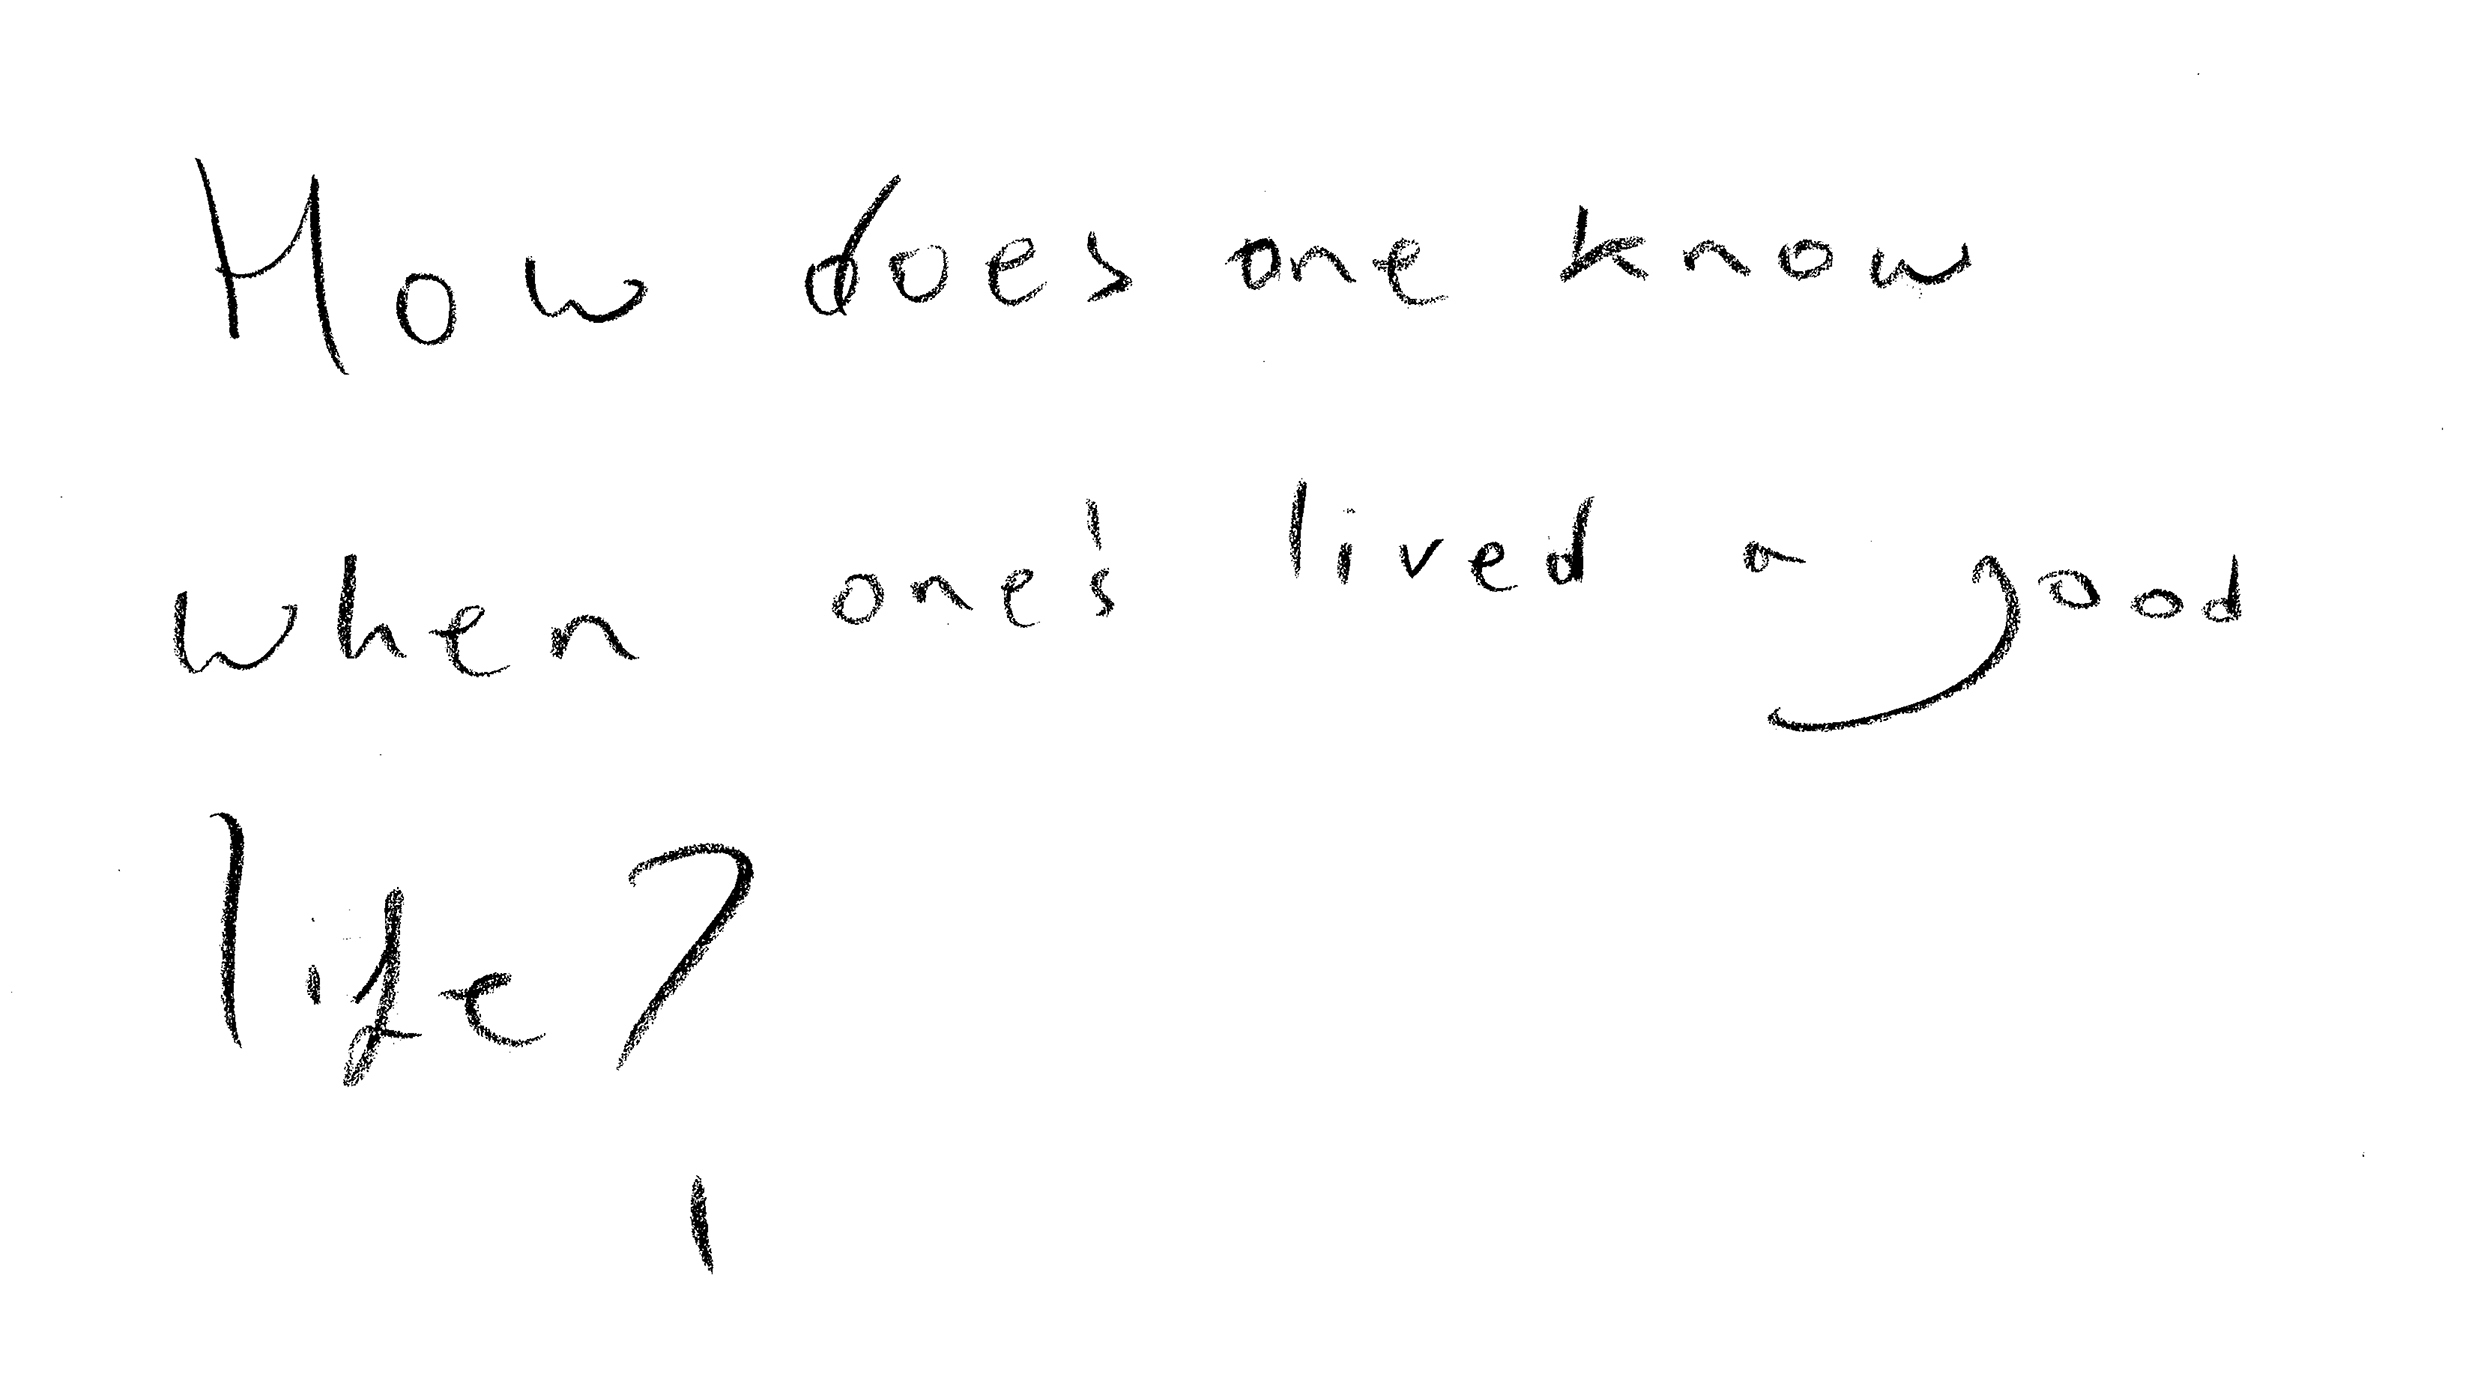 How does one know
when one's lived a good
life?